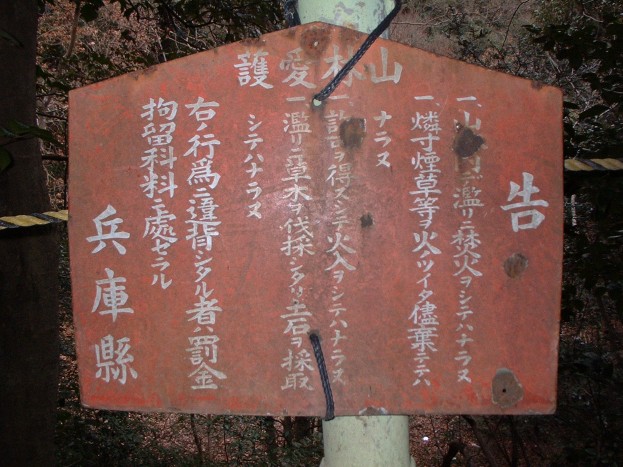 山林愛護
告
一、山デ濫リニ焚火ヲシテハナラヌ
一、燐寸煙草等ヲ火ノツイタ儘棄テテハ
ナラヌ
一 許可ヲ得ズシテ火入ヲシテハナラヌ
一 濫リニ草木ヲ伐採シタリ土石ヲ採取
シテハナラヌ
右ノ行爲ニ違背シタル者ハ罰金
拘留科料ニ處セラル
兵庫縣